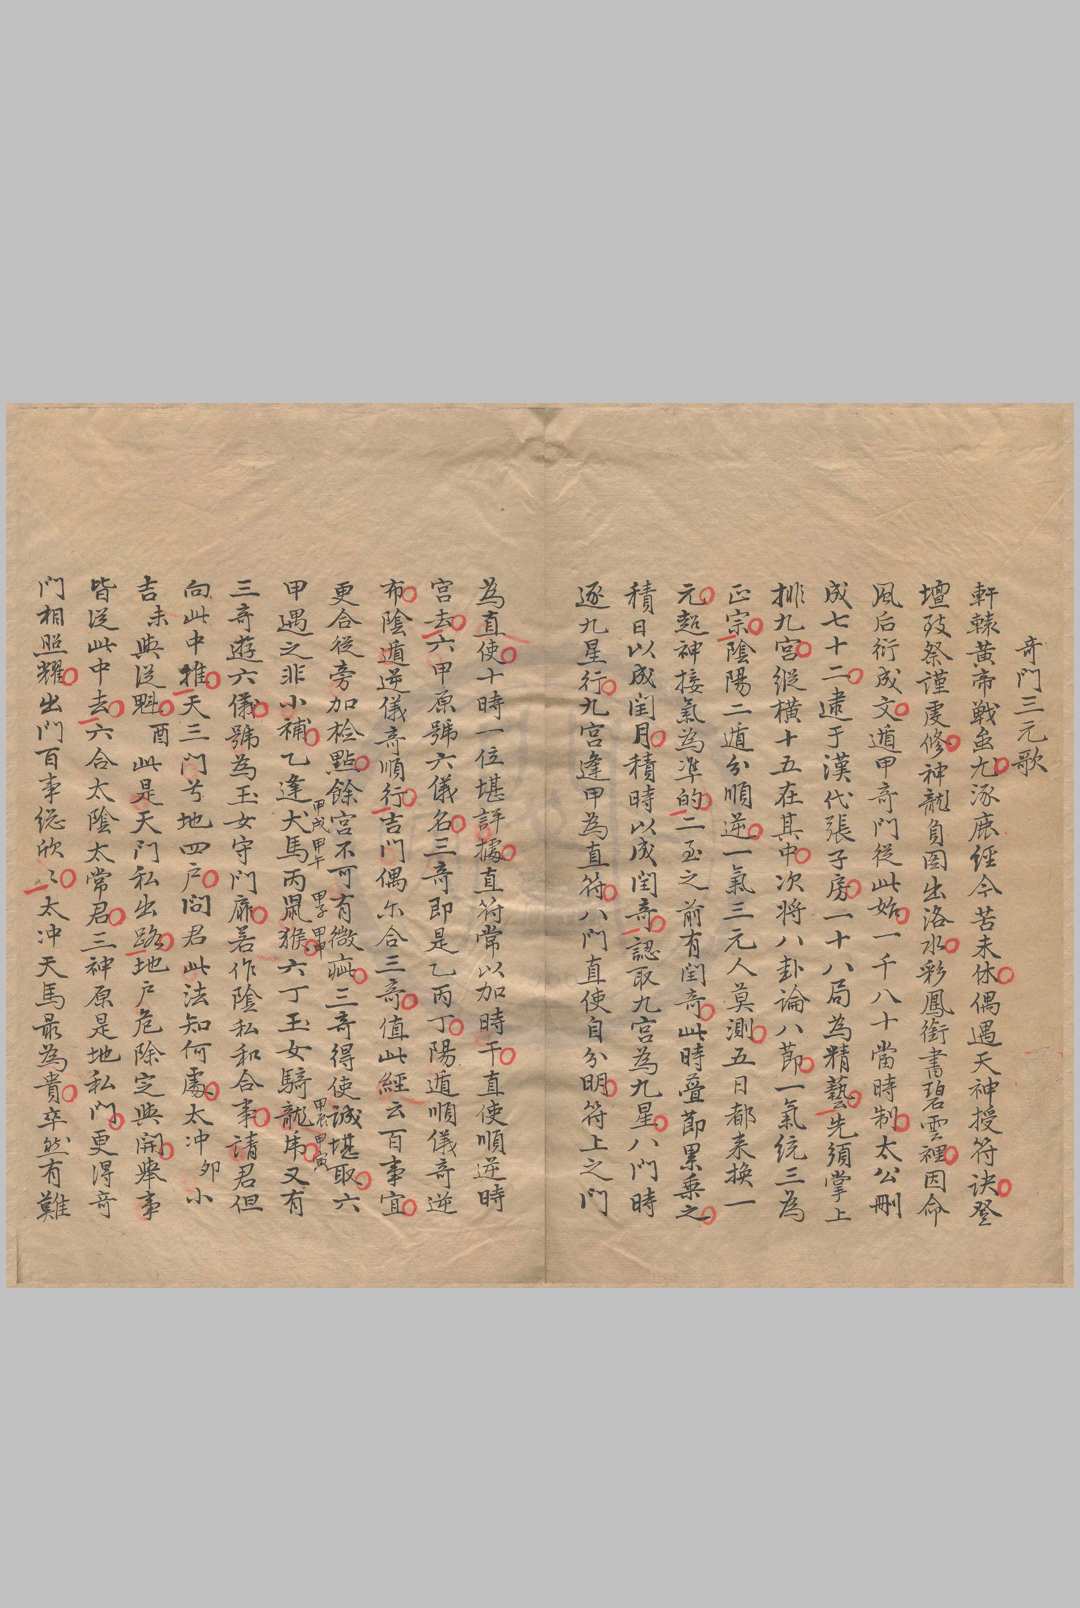 奇門三元歌
軒轅黃帝戰蚩尤涿鹿經今苦未休偶遇天神授符訣登
壇致祭謹虔修神龍負图出洛水彩鳳銜書碧雲裡因命
風后衍成文遁甲奇門從此始一千八十當時制太公刪
成七十二逮于漢代張子房一十八局為精藝先須掌上
排九宮縱橫十五在其中次將八卦論八節一氣統三為
正宗陰陽二遁分順逆一氣三元人莫測五日都来換一
元超神接氣為準的二至之前有閏奇此時叠節累乘之
積日以成閏月積時以成閏奇認取九宮為九星八門時
逐九星行九宮逢甲為直符八門直使自分明符上之門
為直使十時一位堪評據直符常以加時干直使順逆時
宮去六甲原號六儀名三奇即是乙丙丁陽遁順儀奇逆
布陰遁逆儀奇順行吉門偶尓合三奇值此經云百事宜
更合從旁加桧點餘宮不可有微疵三奇得使誠堪取六
甲遇之非小補乙逢犬馬甲戌甲午丙鼠猴甲子甲申六丁玉女騎龍虎甲辰甲寅又有
三奇遊六儀號為玉女守門扉若作陰私和合事請君但
向此中推天三門兮地四户問君此法知何處太冲卯小
吉未與從魁酉此是天門私出路地户危除定與開舉事
皆從此中去六合太陰太常君三神原是地私門更得奇
門相照耀出門百事総欣〻太冲天馬最為貴卒然有難